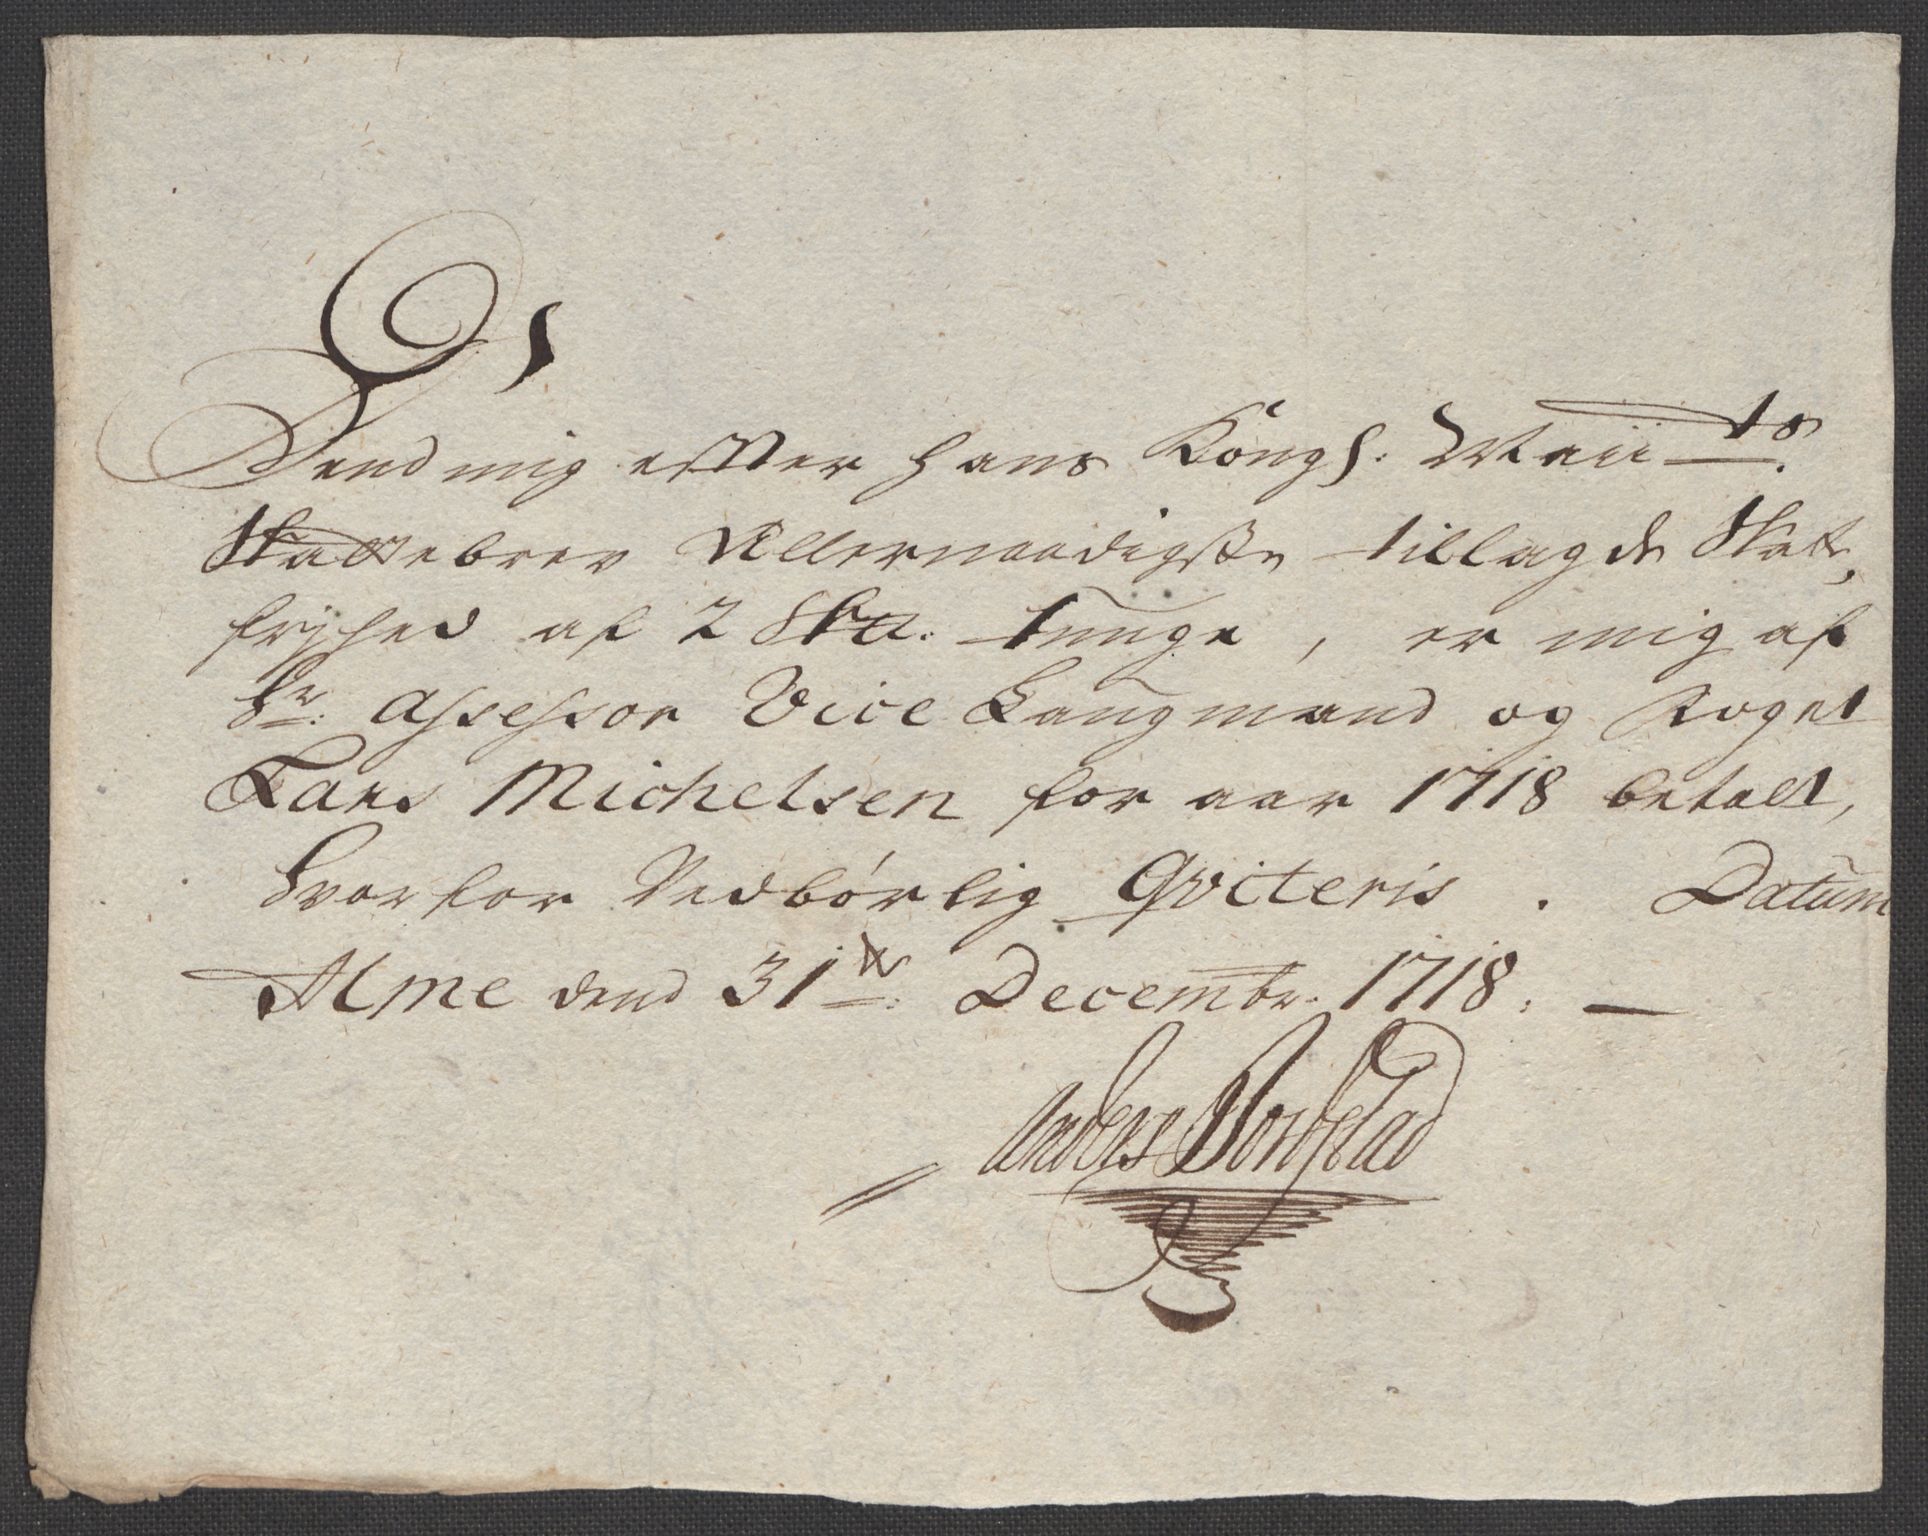 Dend mig effter hans Kongl. Maii ts.
Skattebrev Allernaadigste tillagde Skatt,
frjhed af 2 tunge, er mig af
Hr. Assessor Vice Laugmand og Foget
Lars Michelsen for aar 1718 betalt,
hvorfor Vedbørlig Qviteris. Datum
Alme dend 31te: Decembr. 1718. —
Anders